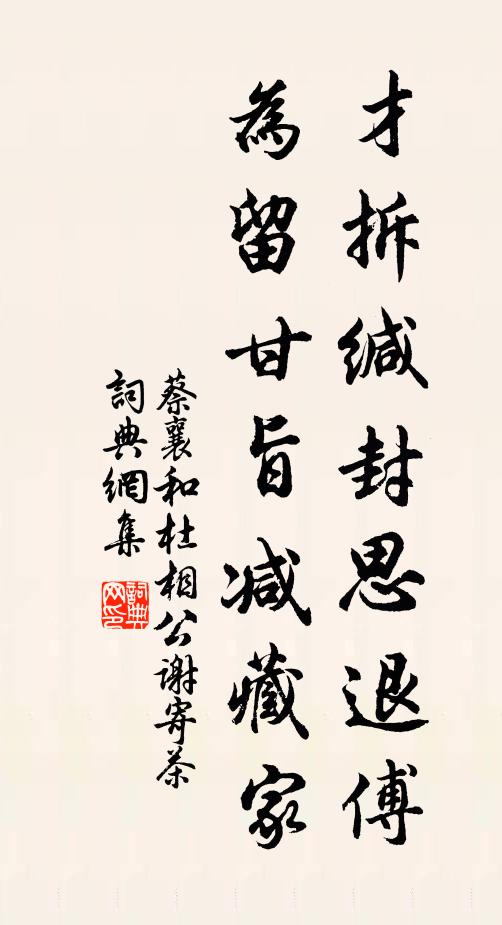 才拆缄封思退傅
為留甘旨减藏家
蔡襄和杜相公謝寄茶
詞典網集
詞典网印